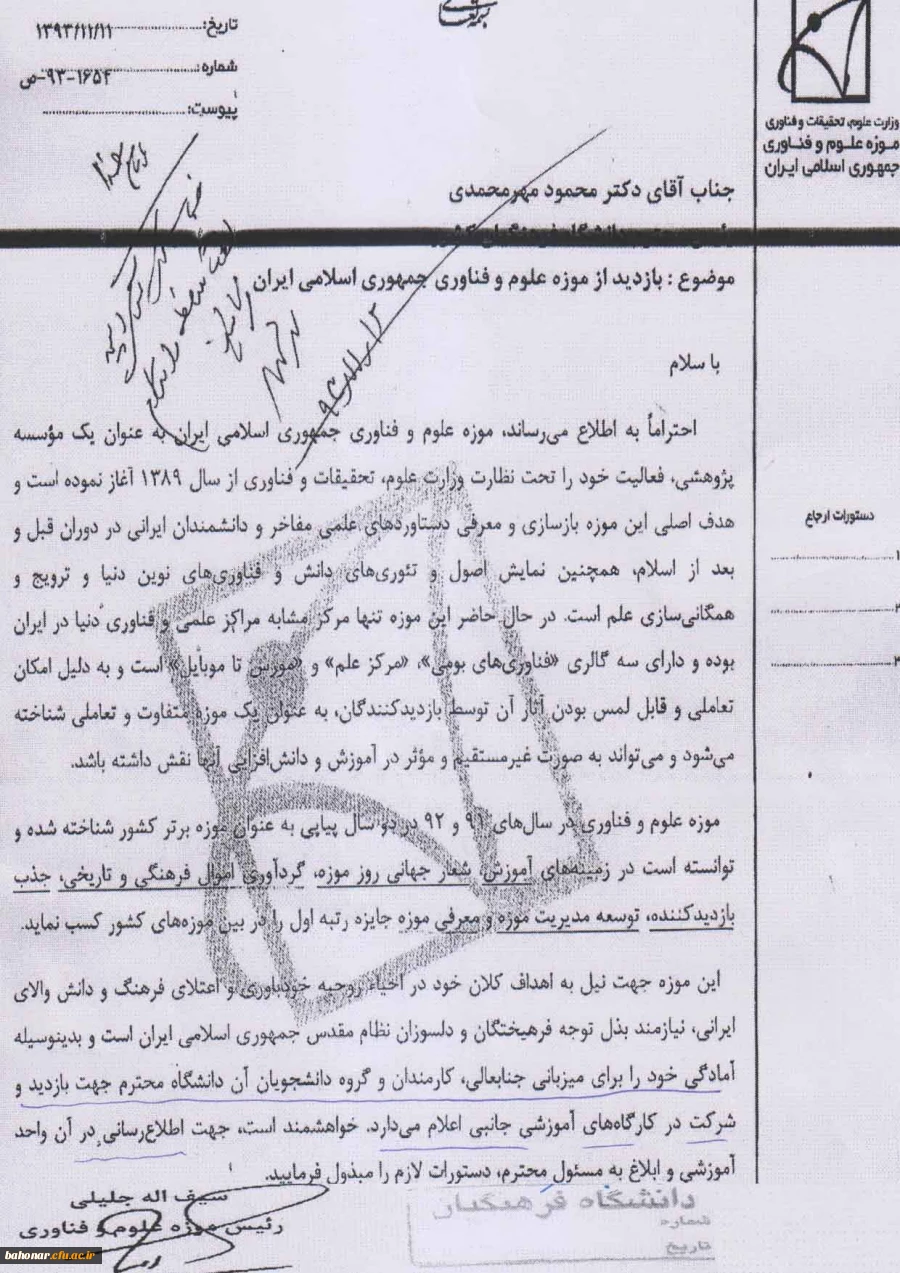 بسمه تعالی
تاریخ: ۱۳۹۳/۱۱/۱۱
شماره: ۱۶۵۴-۹۳-ص
پیوست:
وزارت علوم، تحقیقات و فناوری
موزه علـوم و فنـاوری
جمهوری اسلامی ایران
جناب آقای دکتر محمود مهرمحمدی
موضوع : بازدید از موزه علوم و فناوری جمهوری اسلامی ایران
۹۳/۱۱/۱۲
با سلام
احتراماً به اطلاع می‌رساند، موزه علوم و فناوری جمهوری اسلامی ایران به عنوان یک مؤسسه
پژوهشی، فعالیت خود را تحت نظارت وزارت علوم، تحقیقات و فناوری از سال ۱۳۸۹ آغاز نموده است و
هدف اصلی این موزه بازسازی و معرفی دستاوردهای علمی مفاخر و دانشمندان ایرانی در دوران قبل و
بعد از اسلام، همچنین نمایش اصول و تئوری‌های دانش و فناوری‌های نوین دنیا و ترویج و
همگانی‌سازی علم است. در حال حاضر این موزه تنها مرکز مشابه مراکز علمی و فناوری دنیا در ایران
بوده و دارای سه گالری «فناوری‌های بومی»، «مرکز علم» و «مورس تا موبایل» است و به دلیل امکان
تعاملی و قابل لمس بودن آثار آن توسط بازدیدکنندگان، به عنوان یک موزه متفاوت و تعاملی شناخته
می‌شود و می‌تواند به صورت غیرمستقیم و مؤثر در آموزش و دانش‌افزایی آنها نقش داشته باشد.
موزه علوم و فناوری در سال‌های ۹۱ و ۹۲ در دو سال پیاپی به عنوان موزه برتر کشور شناخته شده و
توانسته است در زمینه‌های آموزش، شعار جهانی روز موزه، گردآوری اموال فرهنگی و تاریخی، جذب
بازدیدکننده، توسعه مدیریت موزه و معرفی موزه جایزه رتبه اول را در بین موزه‌های کشور کسب نماید.
این موزه جهت نیل به اهداف کلان خود در احیاء روحیه خودباوری و اعتلای فرهنگ و دانش والای
ایرانی، نیازمند بذل توجه فرهیختگان و دلسوزان نظام مقدس جمهوری اسلامی ایران است و بدینوسیله
آمادگی خود را برای میزبانی جنابعالی، کارمندان و گروه دانشجویان آن دانشگاه محترم جهت بازدید و
شرکت در کارگاه‌های آموزشی جانبی اعلام می‌دارد. خواهشمند است، جهت اطلاع‌رسانی در آن واحد
آموزشی و ابلاغ به مسئول محترم، دستورات لازم را مبذول فرمایید.
سیف اله جلیلی
رئیس موزه علوم و فناوری
دستورات ارجاع
۱
۲
۳
دانشگاه فرهنگیان
شماره
تاریخ
bahonar.cfu.ac.ir